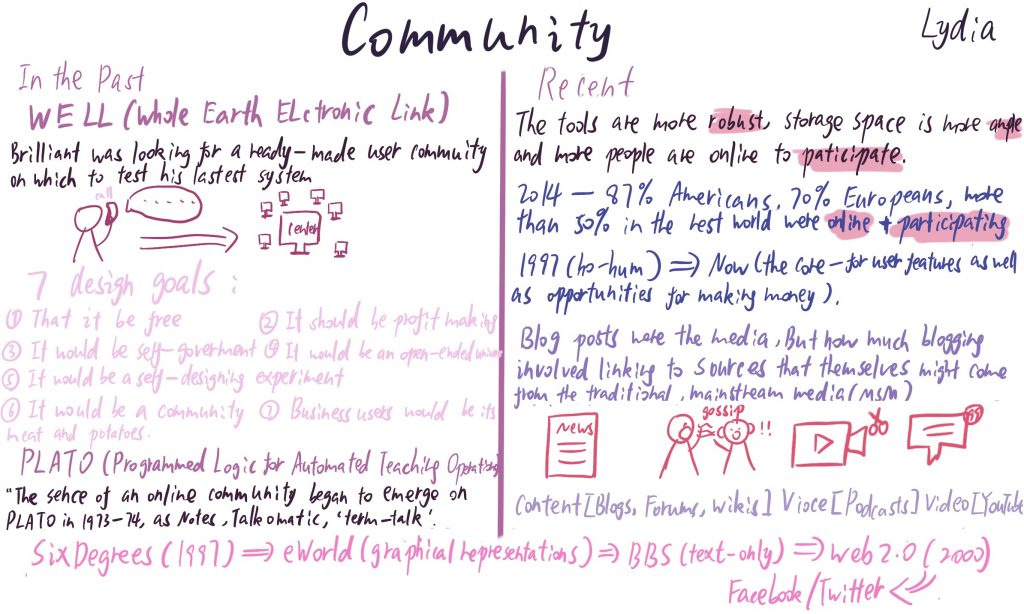 Community
Lydia
In the Past
WELL (Whole Earth ELctronic Link)
Brilliant was looking for a ready-made user community
on which to test his lastest system
call
center
7 design goals :
① That it be free
② It should be profit making
③ It would be self-goverment
④ It would be an open-ended
⑤ It would be a self-designing experiment
⑥ It would be a community
⑦ Business users would be its
meat and potatoes.
PLATO (Programmed Logic for Automated Teaching
"The sence of an online community began to emerge on
PLATO in 1973-74, as Notes, Talkomatic, 'term-talk'.
Recent
The tools are more robust, storage space is more
and more people are online to paticipate.
2014 - 87% Americans, 70% Europeans, more
than 50% in the rest world were online + participating
1997 (ho-hum) => Now (the core-for user features as well
as opportunities for making money).
Blog posts were the media, But how much blogging
involved linking to sources that themselves might come
from the traditional, mainstream media (MSM)
NEWS
gossip
!!
99
Content [Blogs, Forums, Wikis] Vioce [Podcasts] Video [YouTube
SixDegrees (1997) => eWorld (graphical representations) => BBS (text-only) => web 2.0 (2000)
Facebook/Twitter